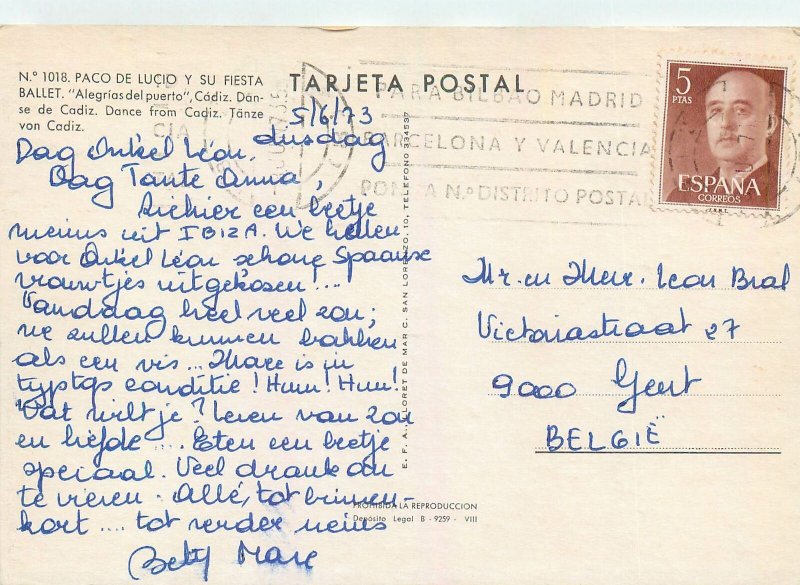 N.º 1018. PACO DE LUCIO Y SU FIESTA
BALLET. "Alegrías del puerto", Cádiz. Dan-
se de Cadiz. Dance from Cadiz. Tänze
von Cadiz.
TARJETA POSTAL
PARA BILBAO MADRID
BARCELONA Y VALENCIA
PONGA N.º DISTRITO POSTAL
5
PTAS
ESPAÑA
CORREOS
5/6/73
dinsdag
Dag Onkel Léon,
Dag Tante Anna,
Ziehier een beetje
nieuws uit IBIZA. We hebben
voor Onkel Léon schone Spaanse
vrouwtjes uitgekozen!...
Vandaag heel veel zon;
we zullen kunnen bakken
als een vis... Marc is in
tiptop conditie! Hum! Hum!
Wat wilt je? Leven van zon
en liefde.... Eten een beetje
speciaal. Veel drank om
te vieren. Allé, tot binnen-
kort.... tot verder nieuws
Betty Marc
Mr. en Mevr. Leon Bral
Victoriastraat 27
9000 Gent
BELGIË
E. F. A., LLORET DE MAR C. SAN LORENZO, 10, TELEFONO 334537
PROHIBIDA LA REPRODUCCION
Depósito Legal B - 9259 - VIII